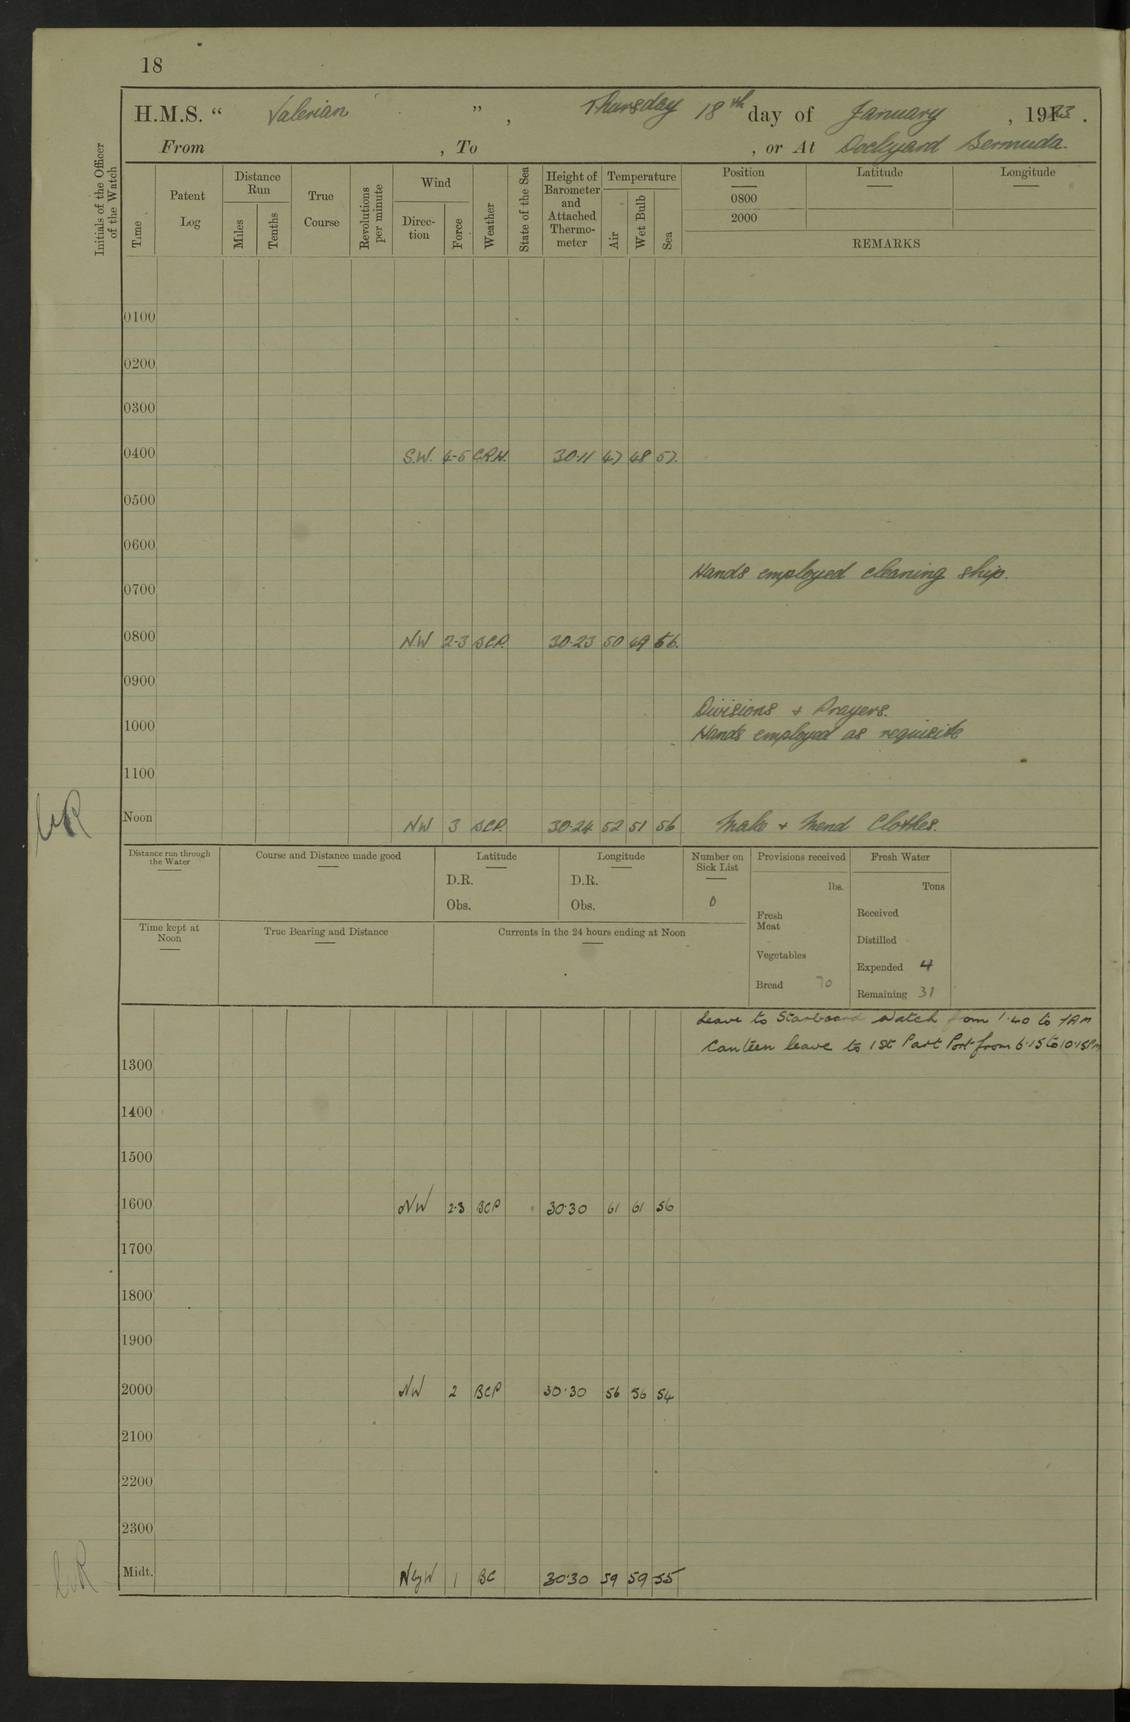 18
H.M.S. “ Valerian ” , Thursday 18th day of January , 1923 .
From , To , or At Dockyard Bermuda.
Initials of the Officer of the Watch
Time
Patent Log
Distance Run
Miles
Tenths
True Course
Revolutions per minute
Wind
Direction
Force
Weather
State of the Sea
Height of Barometer and Attached Thermometer
Temperature
Air
Wet Bulb
Sea
Position Latitude Longitude
0800
2000
REMARKS
0100
0200
0300
0400 S.W. 4-5 30.11 47 48 57.
0500
0600
Hands employed cleaning ship.
0700
0800 NW 2-3 BCP. 30.23 50 49 56.
0900
Divisions + Prayers.
1000
Hands employed as requisite
1100
Noon NW 3 BCP. 30.24 52 51 56 Make + Mend Clothes.
Distance run through the Water
Course and Distance made good
Latitude
D.R.
Obs.
Longitude
D.R.
Obs.
Number on Sick List
0
Provisions received
lbs.
Fresh Meat
Vegetables
Bread 70
Fresh Water
Tons
Received
Distilled
Expended 4
Remaining 31
Time kept at Noon
True Bearing and Distance
Currents in the 24 hours ending at Noon
Leave to Starboard Watch from 1.40 to 7AM
Canteen leave to 1st Part Port from 6.15 to 10.15PM
1300
1400
1500
1600 NW 2.3 BCP 30.30 61 61 56
1700
1800
1900
2000 NW 2 BCP 30.30 56 56 54
2100
2200
2300
Midt. NbyW 1 BC 30.30 59 59 55